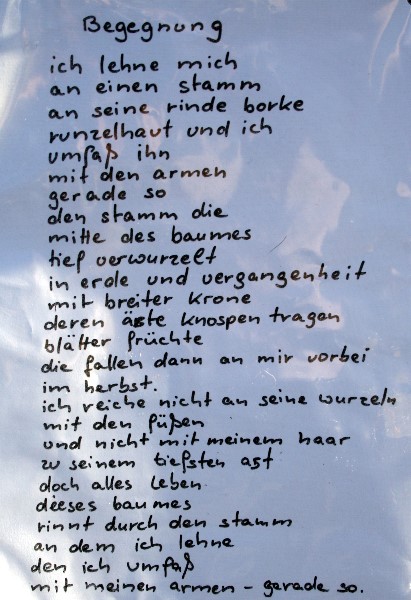 Begegnung
ich lehne mich
an einen stamm
an seine rinde borke
runzelhaut und ich
umfaß ihn
mit den armen
gerade so
den stamm die
mitte des baumes
tief verwurzelt
in erde und vergangenheit
mit breiter krone
deren äste knospen tragen
blätter früchte
die fallen dann an mir vorbei
im herbst.
ich reiche nicht an seine wurzeln
mit den füßen
und nicht mit meinem haar
zu seinem tiefsten ast
doch alles leben
dieses baumes
rinnt durch den stamm
an dem ich lehne
den ich umfaß
mit meinen armen – gerade so.